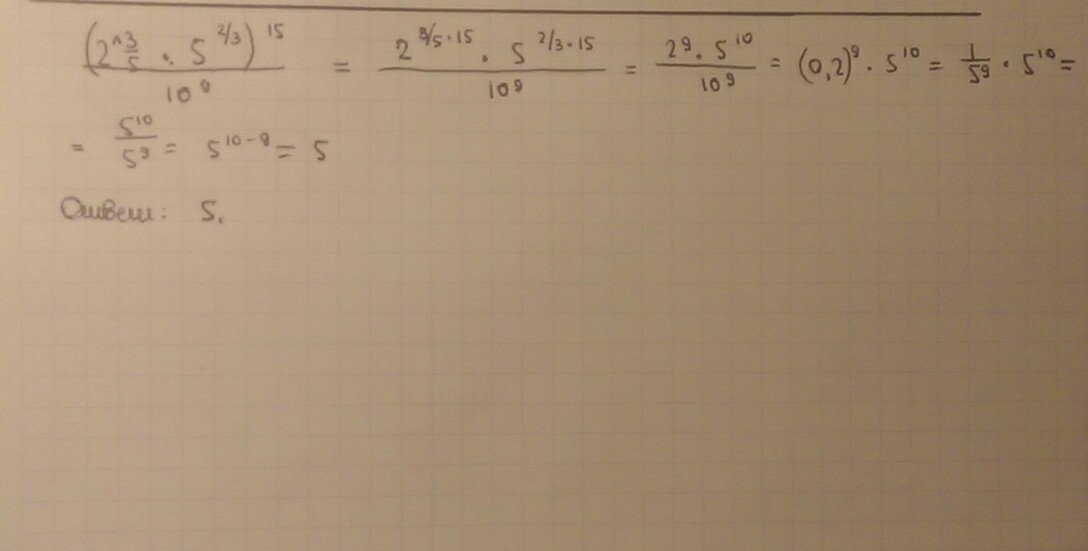 (2^3/5 · 5^2/3)^15 / 10^9 = 2^3/5·15 · 5^2/3·15 / 10^9 = 2^9 · 5^10 / 10^9 = (0,2)^9 · 5^10 = 1/5^9 · 5^10 =
= 5^10/5^9 = 5^10-9 = 5
Ответ: 5.